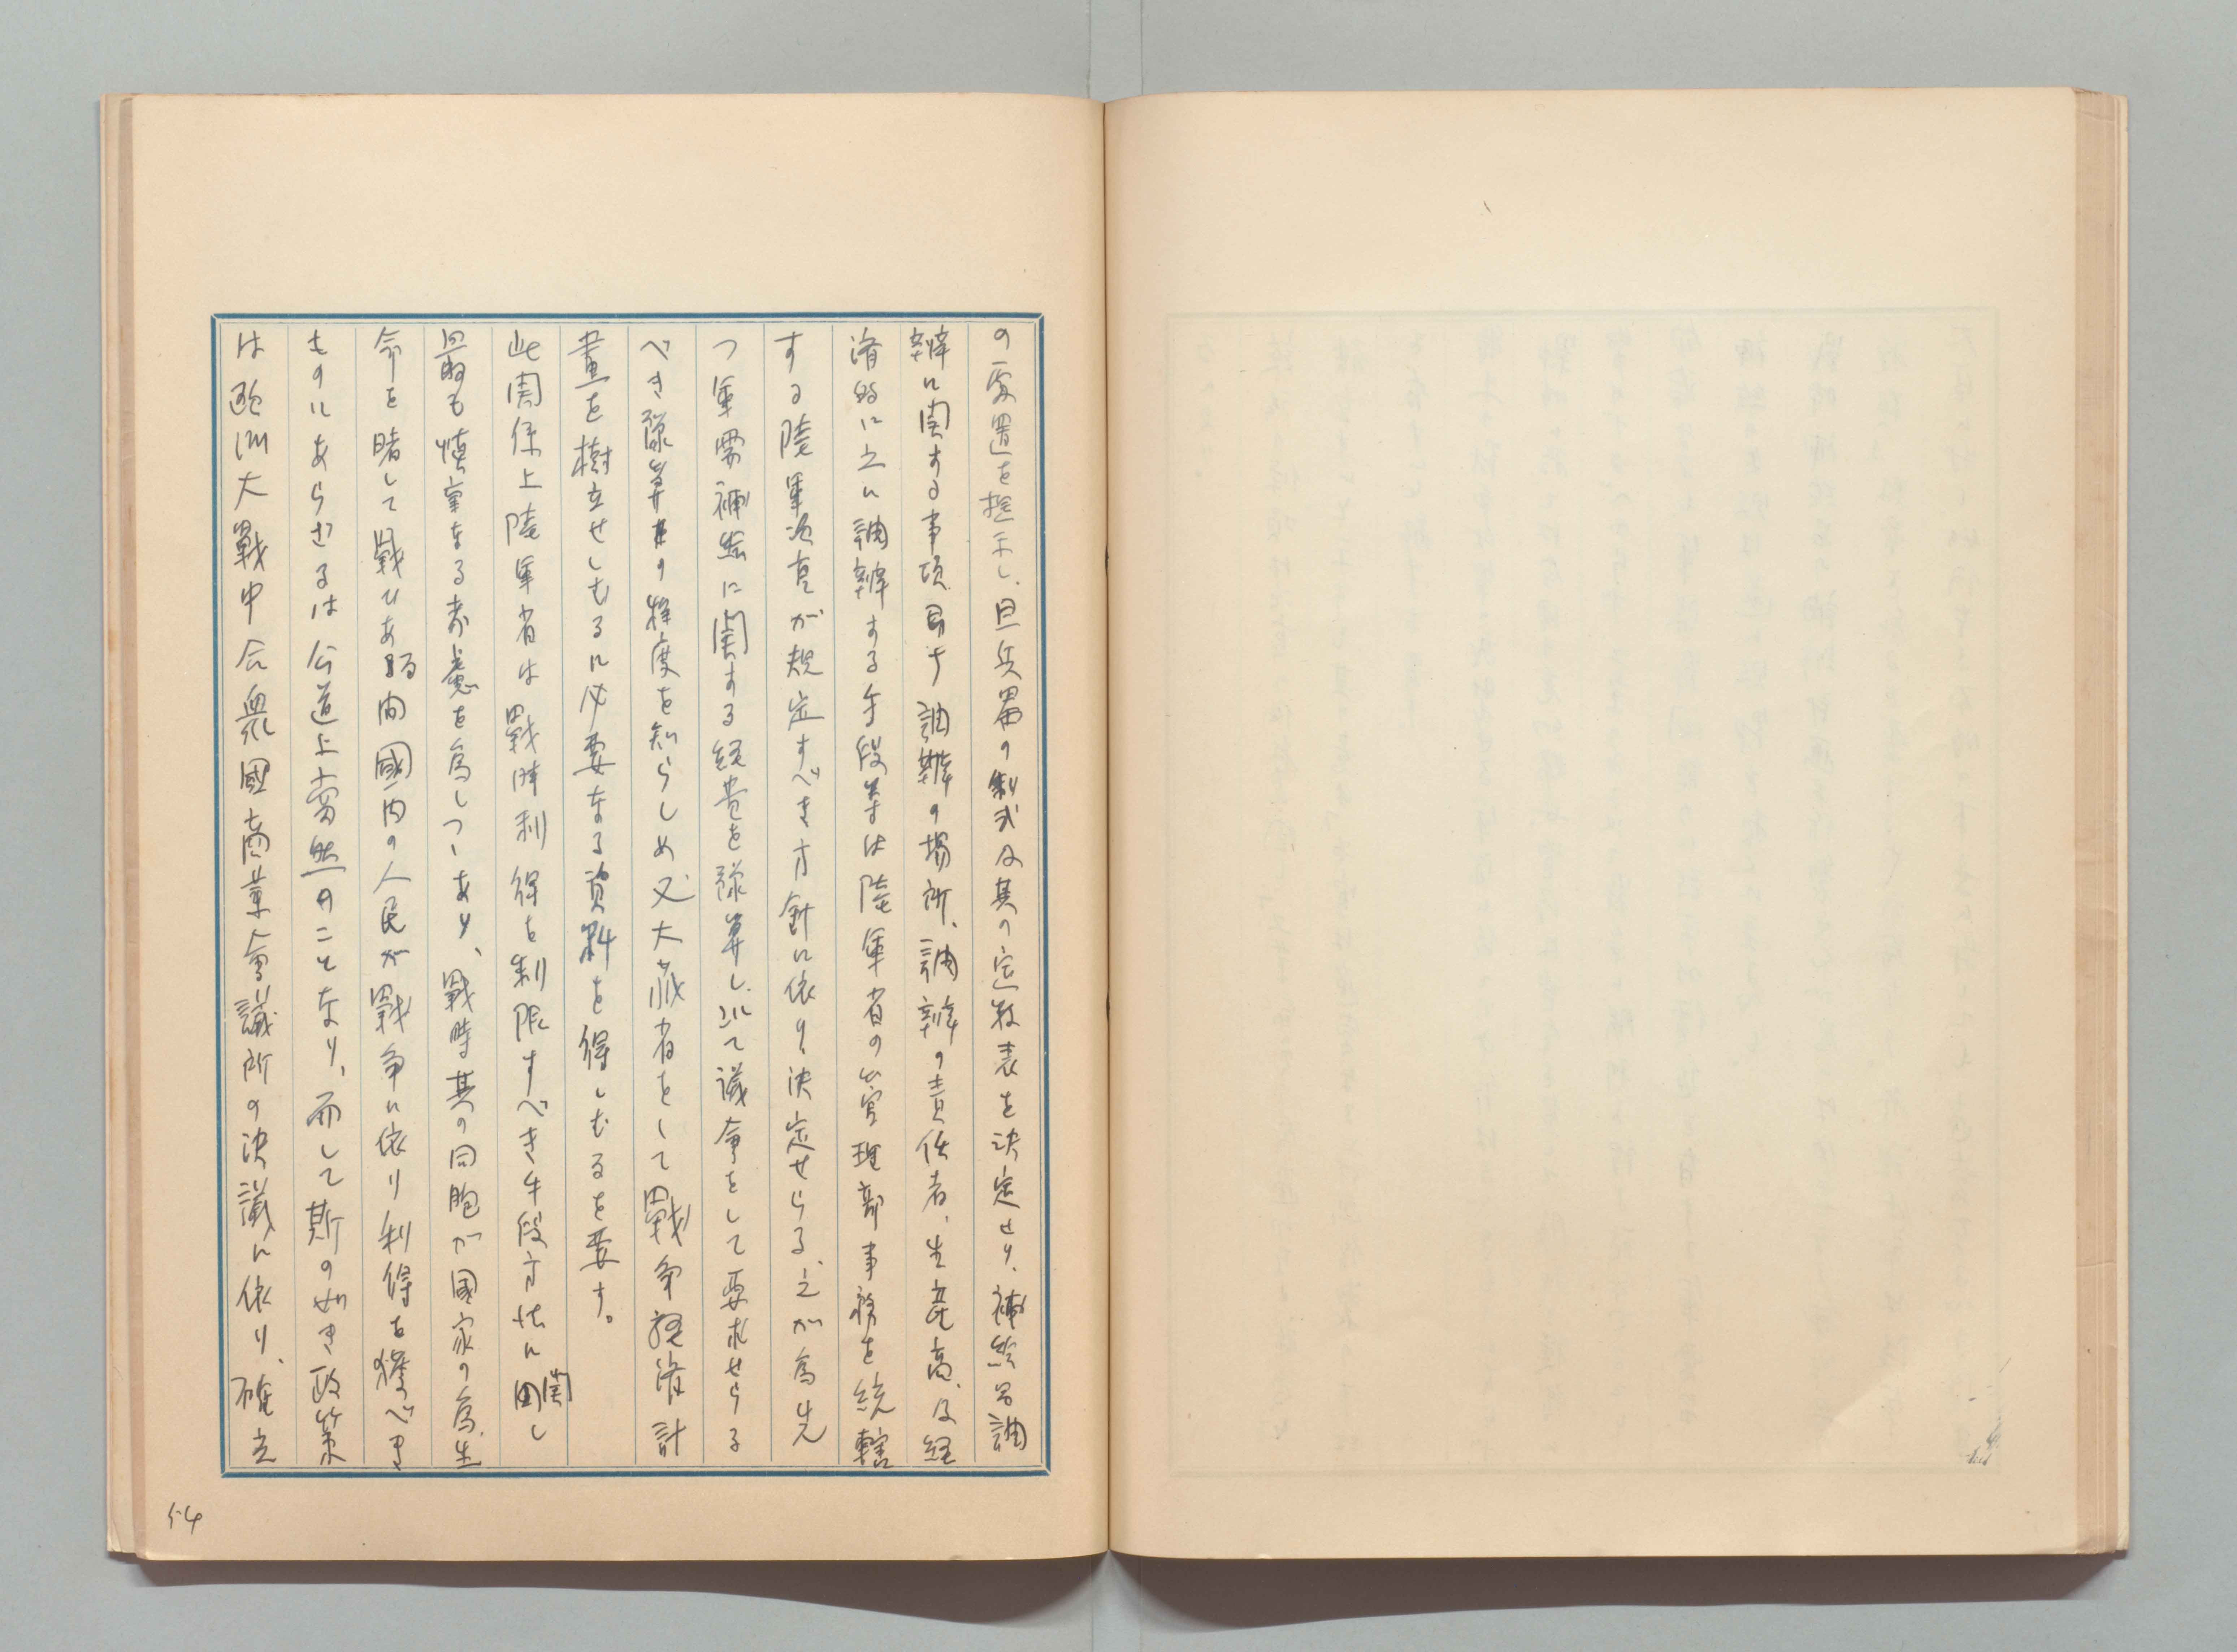 の處置を提示し、且兵器の制式及其の定数表を決定せり、補給品調
辨に関する事項即ち調辨の場所、調辨の責任者、生産高、及経
済的に之に調辨する手段等は陸軍省の管理部事務を統轄
する陸軍次官が規定すべき方針に依り決定せらる、之が為先
つ軍需補給に関する経費を豫算し、以て議会をして要求せらる
べき豫算の程度を知らしめ、又大蔵省をして戰争経済計
畫を樹立せしむるに必要なる資料を得しむるを要す。
此関係上陸軍省は戰時利得を制限すべき手段方法に関し
最も慎重なる考慮を為しつゝあり、戰時其の同胞が國家の為、生
命を賭して戰ひある間國内の人民が戰争に依り利得を獲べき
ものにあらざるは公道上當然のことなり、而して斯の如き政策
は欧洲大戰中合衆國商業會議所の決議に依り、確立
54